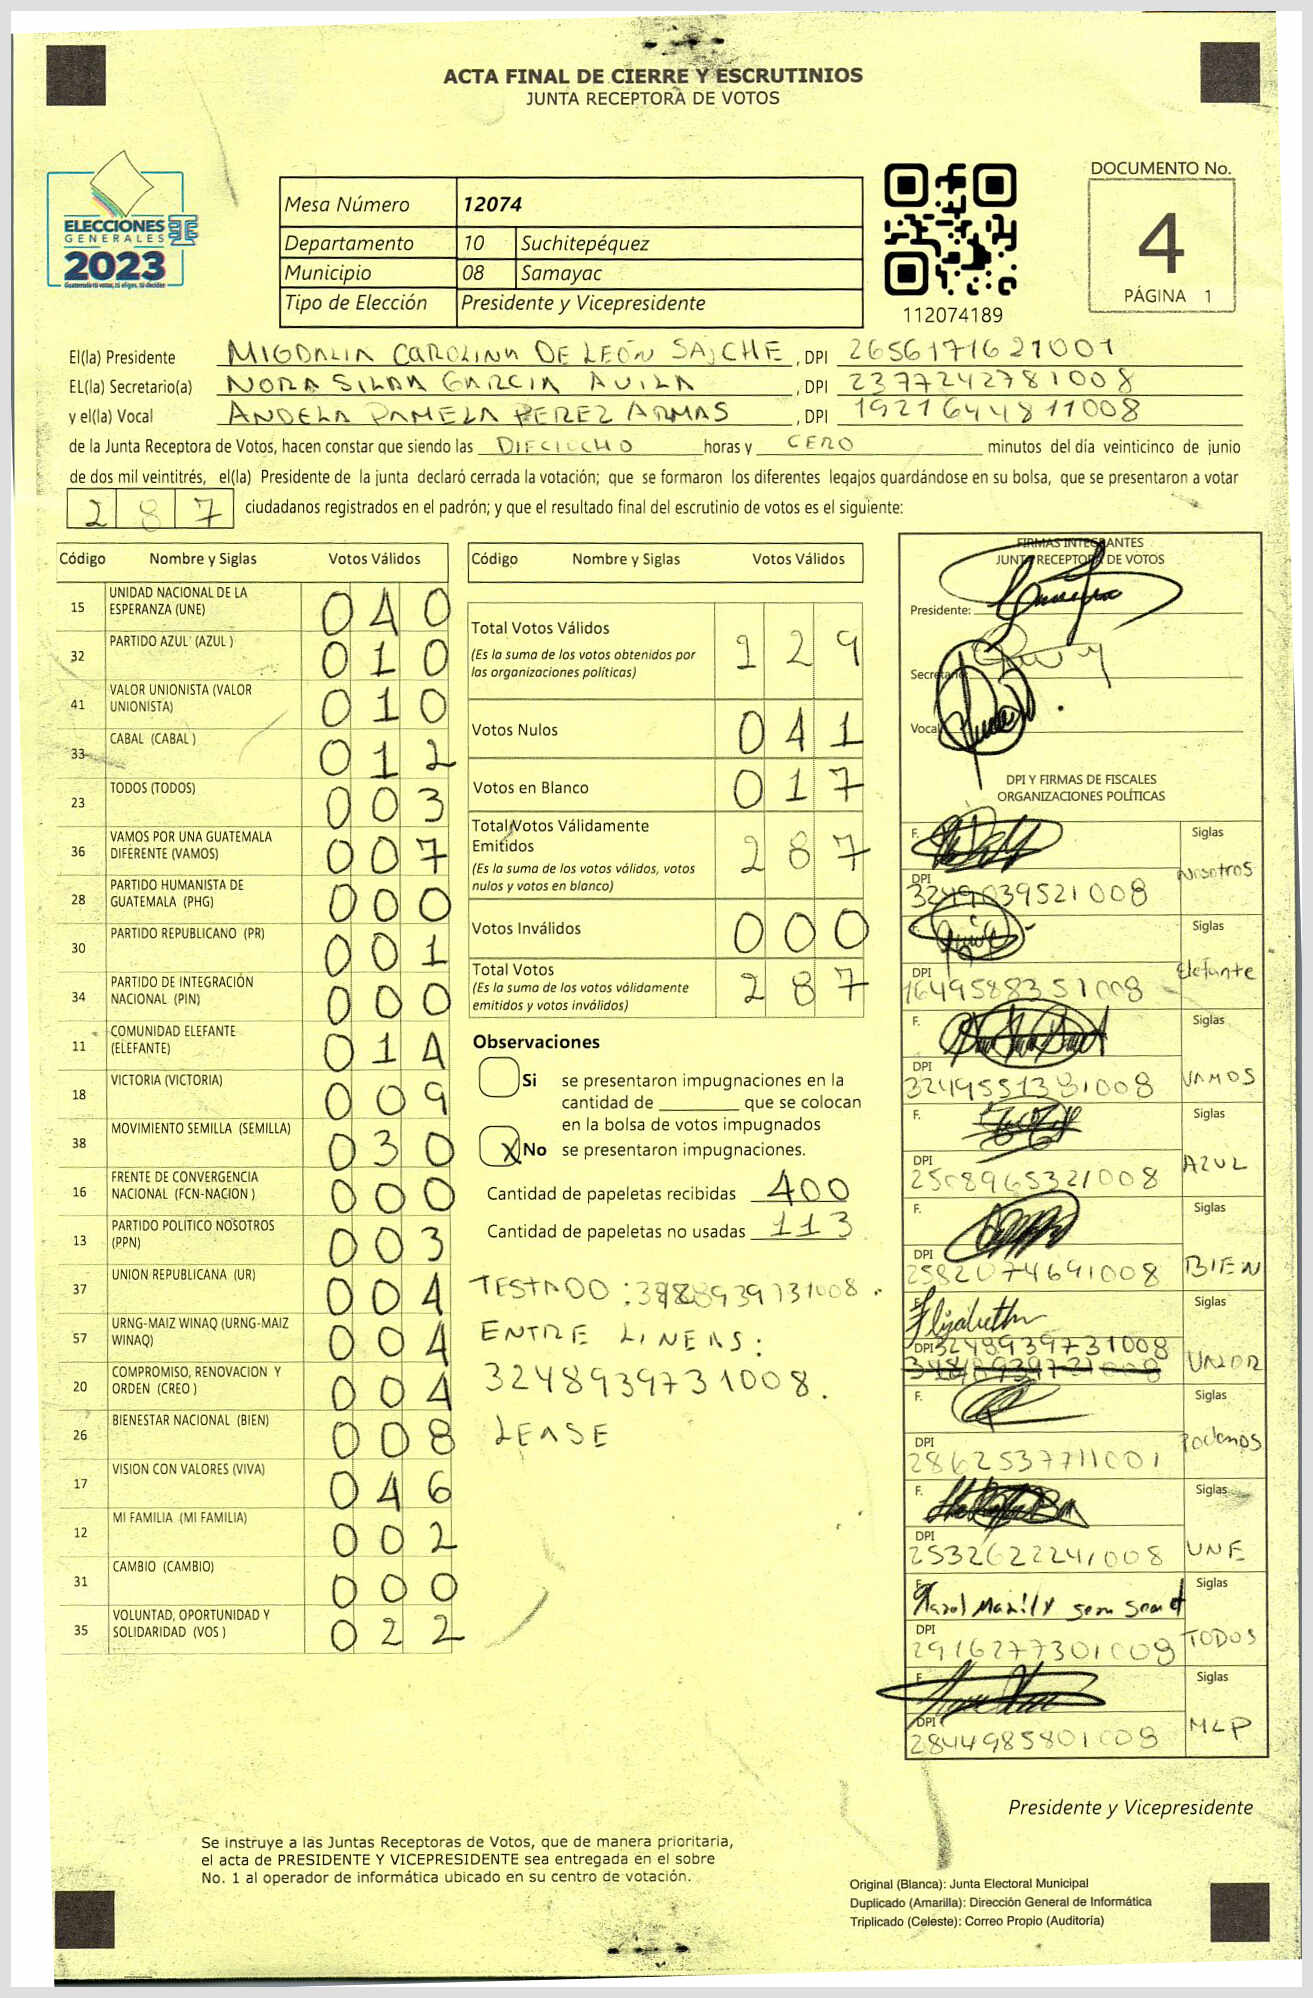 ACTA FINAL DE CIERRE Y ESCRUTINIOS
JUNTA RECEPTORA DE VOTOS
ELECCIONES
GENERALES
2023
Guatemala tú votar, tú eliges, tú decides
Mesa Número 12074
Departamento 10 Suchitepéquez
Municipio 08 Samayac
Tipo de Elección Presidente y Vicepresidente
112074189
DOCUMENTO No.
4
PÁGINA 1
El(la) Presidente MIGDALIA CAROLINA DE LEÓN SAJCHE, DPI 2656171621001
EL(la) Secretario(a) NORA SILDA GARCIA AVILA, DPI 2377242781008
y el(la) Vocal ANDELA PAMELA PEREZ ARMAS, DPI 1921644811008
de la Junta Receptora de Votos, hacen constar que siendo las DIECIOCHO horas y CERO minutos del día veinticinco de junio
de dos mil veintitrés, el(la) Presidente de la junta declaró cerrada la votación; que se formaron los diferentes legajos guardándose en su bolsa, que se presentaron a votar
287 ciudadanos registrados en el padrón; y que el resultado final del escrutinio de votos es el siguiente:
Código Nombre y Siglas Votos Válidos
15 UNIDAD NACIONAL DE LA ESPERANZA (UNE) 040
32 PARTIDO AZUL (AZUL ) 010
41 VALOR UNIONISTA (VALOR UNIONISTA) 010
33 CABAL (CABAL ) 012
23 TODOS (TODOS) 003
36 VAMOS POR UNA GUATEMALA DIFERENTE (VAMOS) 007
28 PARTIDO HUMANISTA DE GUATEMALA (PHG) 000
30 PARTIDO REPUBLICANO (PR) 001
34 PARTIDO DE INTEGRACIÓN NACIONAL (PIN) 000
11 COMUNIDAD ELEFANTE (ELEFANTE) 014
18 VICTORIA (VICTORIA) 009
38 MOVIMIENTO SEMILLA (SEMILLA) 030
16 FRENTE DE CONVERGENCIA NACIONAL (FCN-NACION ) 000
13 PARTIDO POLÍTICO NOSOTROS (PPN) 003
37 UNION REPUBLICANA (UR) 004
57 URNG-MAIZ WINAQ (URNG-MAIZ WINAQ) 004
20 COMPROMISO, RENOVACION Y ORDEN (CREO ) 004
26 BIENESTAR NACIONAL (BIEN) 008
17 VISION CON VALORES (VIVA) 046
12 MI FAMILIA (MI FAMILIA) 002
31 CAMBIO (CAMBIO) 000
35 VOLUNTAD, OPORTUNIDAD Y SOLIDARIDAD (VOS ) 022
Código Nombre y Siglas Votos Válidos
Total Votos Válidos 229
(Es la suma de los votos obtenidos por
las organizaciones políticas)
Votos Nulos 041
Votos en Blanco 017
Total Votos Válidamente
Emitidos 287
(Es la suma de los votos válidos, votos
nulos y votos en blanco)
Votos Inválidos 000
Total Votos 287
(Es la suma de los votos válidamente
emitidos y votos inválidos)
Observaciones
Si se presentaron impugnaciones en la
cantidad de ________ que se colocan
en la bolsa de votos impugnados
X No se presentaron impugnaciones.
Cantidad de papeletas recibidas 400
Cantidad de papeletas no usadas 113
TESTADO : 3488939731008.
ENTRE LINEAS:
3248939731008.
LEASE
FIRMAS INTEGRANTES
JUNTA RECEPTORA DE VOTOS
Presidente:
Secretario:
Vocal
DPI Y FIRMAS DE FISCALES
ORGANIZACIONES POLÍTICAS
F. Siglas
DPI 3249039521008 Nosotros
F. Siglas
DPI 1649588351008 Elefante
F. Siglas
DPI 3249551381008 VAMOS
F. Siglas
DPI 2508965321008 AZUL
F. Siglas
DPI 2582074691008 BIEN
F. Elizabeth Siglas
DPI 3248939731008
UNION
F. Siglas
DPI 2862537711001 Podemos
F. Siglas
DPI 2532622241008 UNE
F. Siglas
DPI 2916277301008 TODOS
F. Siglas
DPI 2844985801008 MLP
Presidente y Vicepresidente
Se instruye a las Juntas Receptoras de Votos, que de manera prioritaria,
el acta de PRESIDENTE Y VICEPRESIDENTE sea entregada en el sobre
No. 1 al operador de informática ubicado en su centro de votación.
Original (Blanca): Junta Electoral Municipal
Duplicado (Amarilla): Dirección General de Informática
Triplicado (Celeste): Correo Propio (Auditoría)